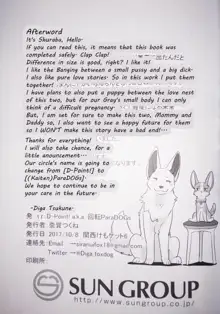 Afterword
It's Shuraba, Hello~
If you can read this, it means that this book was
completed safely~ Clap Clap!
Difference in size is good, right? I like it!
I like the Banging between a small pussy and a big dick~
I also like pure love stories~ So in this work I put them
together!
I have plans to also put a puppy between the love nest of
this two, but for our Gray's small body I can only
think of a difficult pregnancy.
But, I am set for sure to make this two, Mommy and
Daddy so, I also want to see a happy future for them
so I WON'T make this story have a bad end!~
Thanks for everything!
I will also take chance, for a
little anouncement...
Our circle's name is going to
change from [D-Point!] to
[(Kaiten)ParaDOGs]
We hope to continue to be in
your care in the future~
-Diga Tsukune-
発行
発行日 2017.10.8 関西けもケット6
連絡先
Twitter
印刷所
SUN GROUP
www.sungroup.co.jp